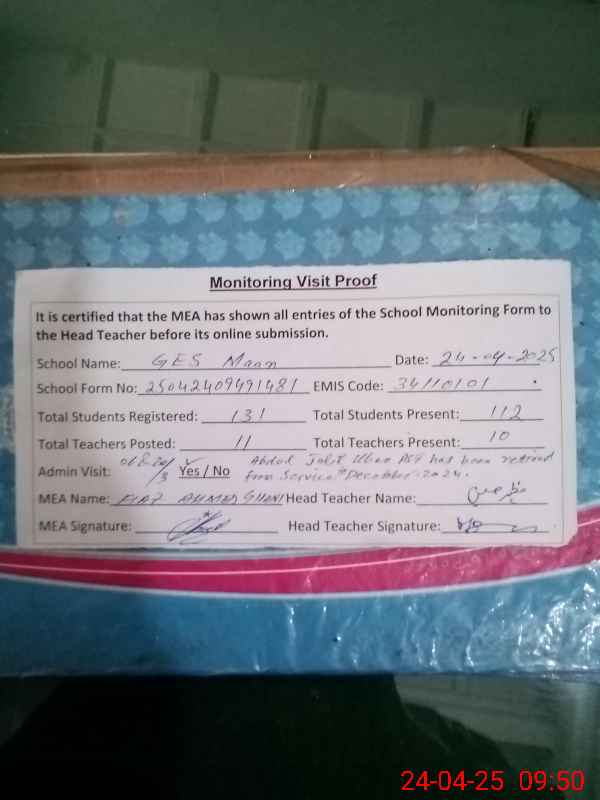 Monitoring Visit Proof
It is certified that the MEA has shown all entries of the School Monitoring Form to
the Head Teacher before its online submission.
School Name: GES Maan Date: 24-04-2025
School Form No: 25042409491481 EMIS Code: 34110101
Total Students Registered: 131 Total Students Present: 112
Total Teachers Posted: 11 Total Teachers Present: 10
Admin Visit: Yes / No Abdul has been retired
from Service December 2024.
MEA Name: AHMED GHANI Head Teacher Name:
MEA Signature: Head Teacher Signature:
24-04-25 09:50